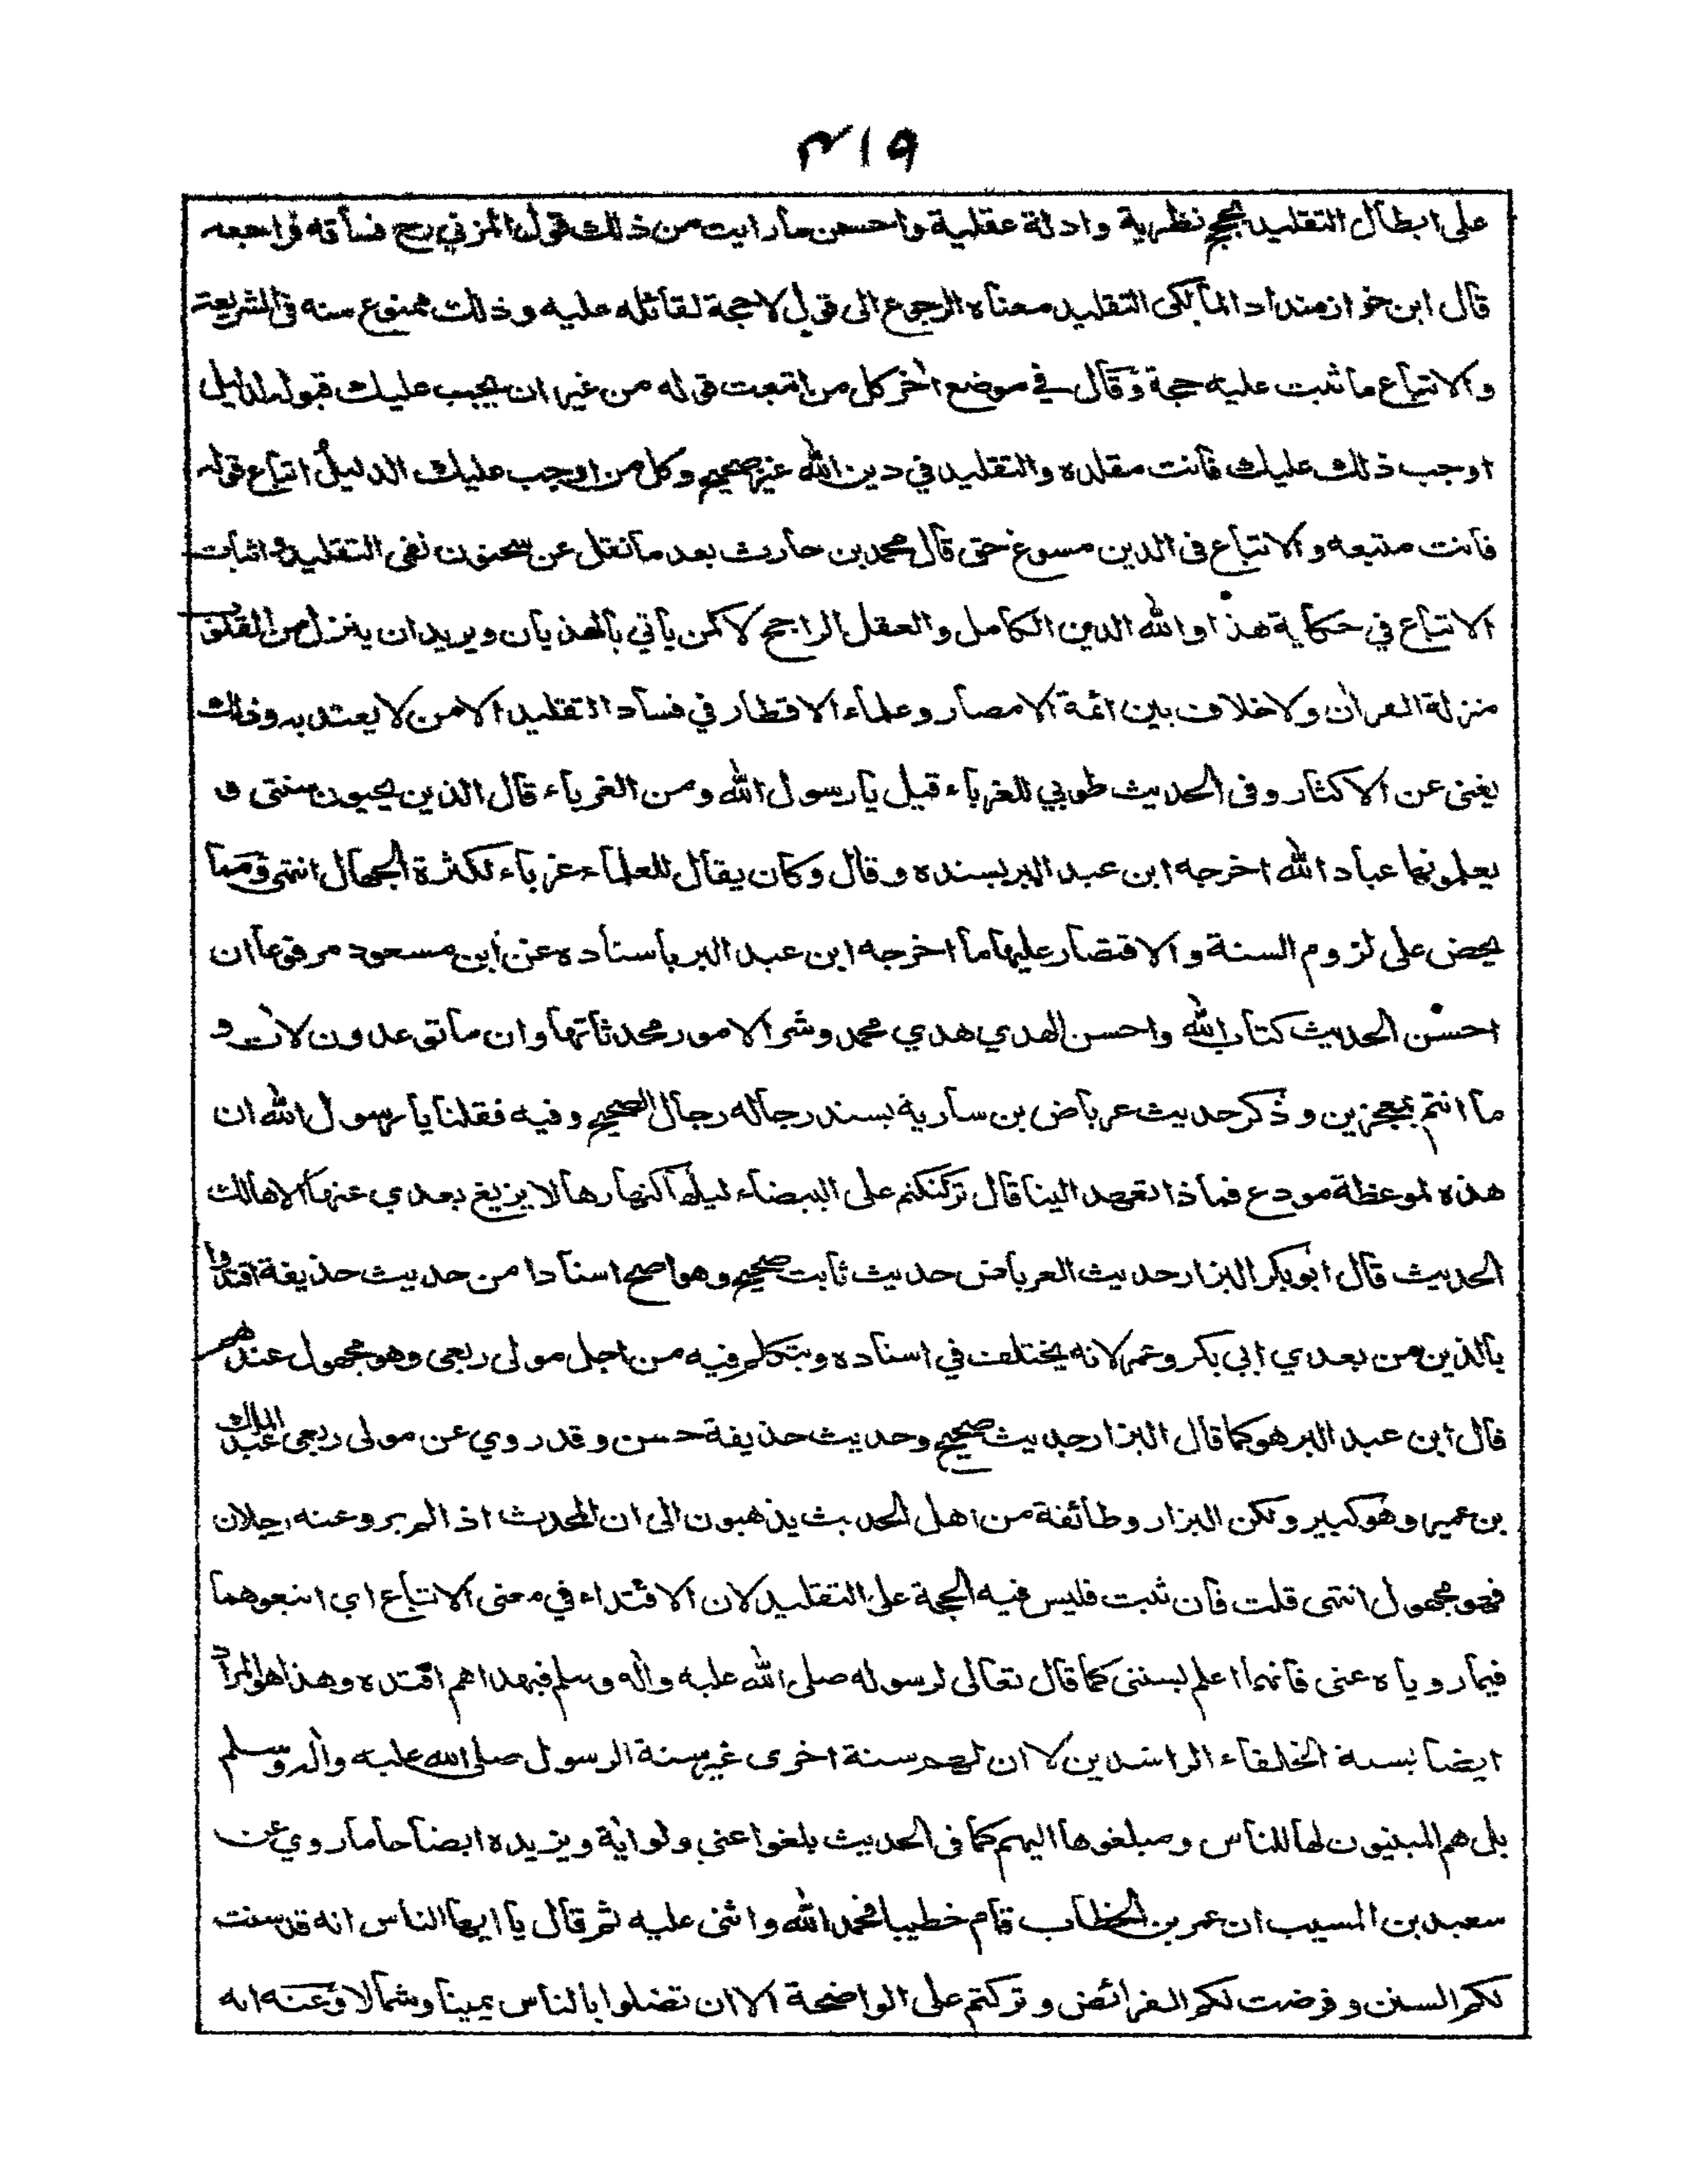 ٣١٩
على ابطال التقليد بحجج نظرية وادلة عقلية واحسن ما رايت من ذلك قول المزني رح فساقه فراجعه
قال ابن خواز منداد المالكى التقليد معناه الرجوع الى قول لاحجة لقائله عليه وذلك ممنوع منه فى الشريعة
والاتباع ما ثبت عليه حجة وقال في موضع اخر كل من اتبعت قوله من غير ان يجب عليك قبوله لدليل
اوجب ذلك عليك فانت مقلده والتقليد في دين الله غير صحيح وكل من اوجب عليك الدليل اتباع قوله
فانت متبعه والاتباع فى الدين مسوغ حتى قال محمد بن حارث بعد ما نقل عن سحنون نفى التقليد واثبات
الاتباع في حكاية هذا والله الدين الكامل والعقل الراجح لا كمن يأتي بالهذيان ويريد ان ينزل من القلوب
منزلة القران ولا خلاف بين ائمة الامصار وعلماء الاقطار في فساد التقليد الا من لا يعتد به وذلك
يغنى عن الاكثار وفى الحديث طوبي للغرباء قيل يا رسول الله ومن الغرباء قال الذين يحيون سنتى و
يعلمونها عباد الله اخرجه ابن عبد البر بسنده وقال وكان يقال للعلماء غرباء لكثرة الجهال انتهى ومما
يحض على لزوم السنة والاقتصار عليها ما اخرجه ابن عبد البر باسناده عن ابن مسعود مرفوعا ان
احسن الحديث كتاب الله واحسن الهدي هدي محمد وشر الامور محدثاتها وان ما توعدون لات و
ما انتم بمعجزين وذكر حديث عرباض بن سارية بسند رجاله رجال الصحيح وفيه فقلنا يا رسول الله ان
هذه لموعظة مودع فماذا تعهد الينا قال تركتكم على البيضاء ليلها كنهارها لا يزيغ بعدي عنها الا هالك
الحديث قال ابو بكر البزار حديث العرباض حديث ثابت صحيح وهو اصح اسنادا من حديث حذيفة اقتدوا
بالذين من بعدي ابي بكر وعمر لانه يختلف في اسناده ويتكلم فيه من اجل مولى ربعى وهو مجهول عندهم
قال ابن عبد البر هو كما قال البزار حديث صحيح وحديث حذيفة حسن وقد روي عن مولى ربعى عبد الملك
بن عمير وهو كبير ولكن البزار وطائفة من اهل الحديث يذهبون الى ان المحدث اذا لم يرو عنه رجلان
فهو مجهول انتهى قلت فان ثبت فليس فيه الحجة على التقليد لان الاقتداء في معنى الاتباع اي اتبعوهما
فيما روياه عنى فانهما اعلم بسنتى كما قال تعالى لرسوله صلى الله عليه واله وسلم فبهداهم اقتده وهذا هو المراد
ايضا بسنة الخلفاء الراشدين لا ان لهم سنة اخرى غير سنة الرسول صلى الله عليه واله وسلم
بل هم المبنيون لها للناس ومبلغوها اليهم كما فى الحديث بلغوا عني ولو اية ويزيده ايضاحا ما روي عن
سعيد بن المسيب ان عمر بن الخطاب قام خطيبا فحمد الله واثنى عليه ثم قال يا ايها الناس انه قد سنت
لكم السنن وفرضت لكم الفرائض وتركتم على الواضحة الا ان تضلوا بالناس يمينا وشمالا وعنه انه